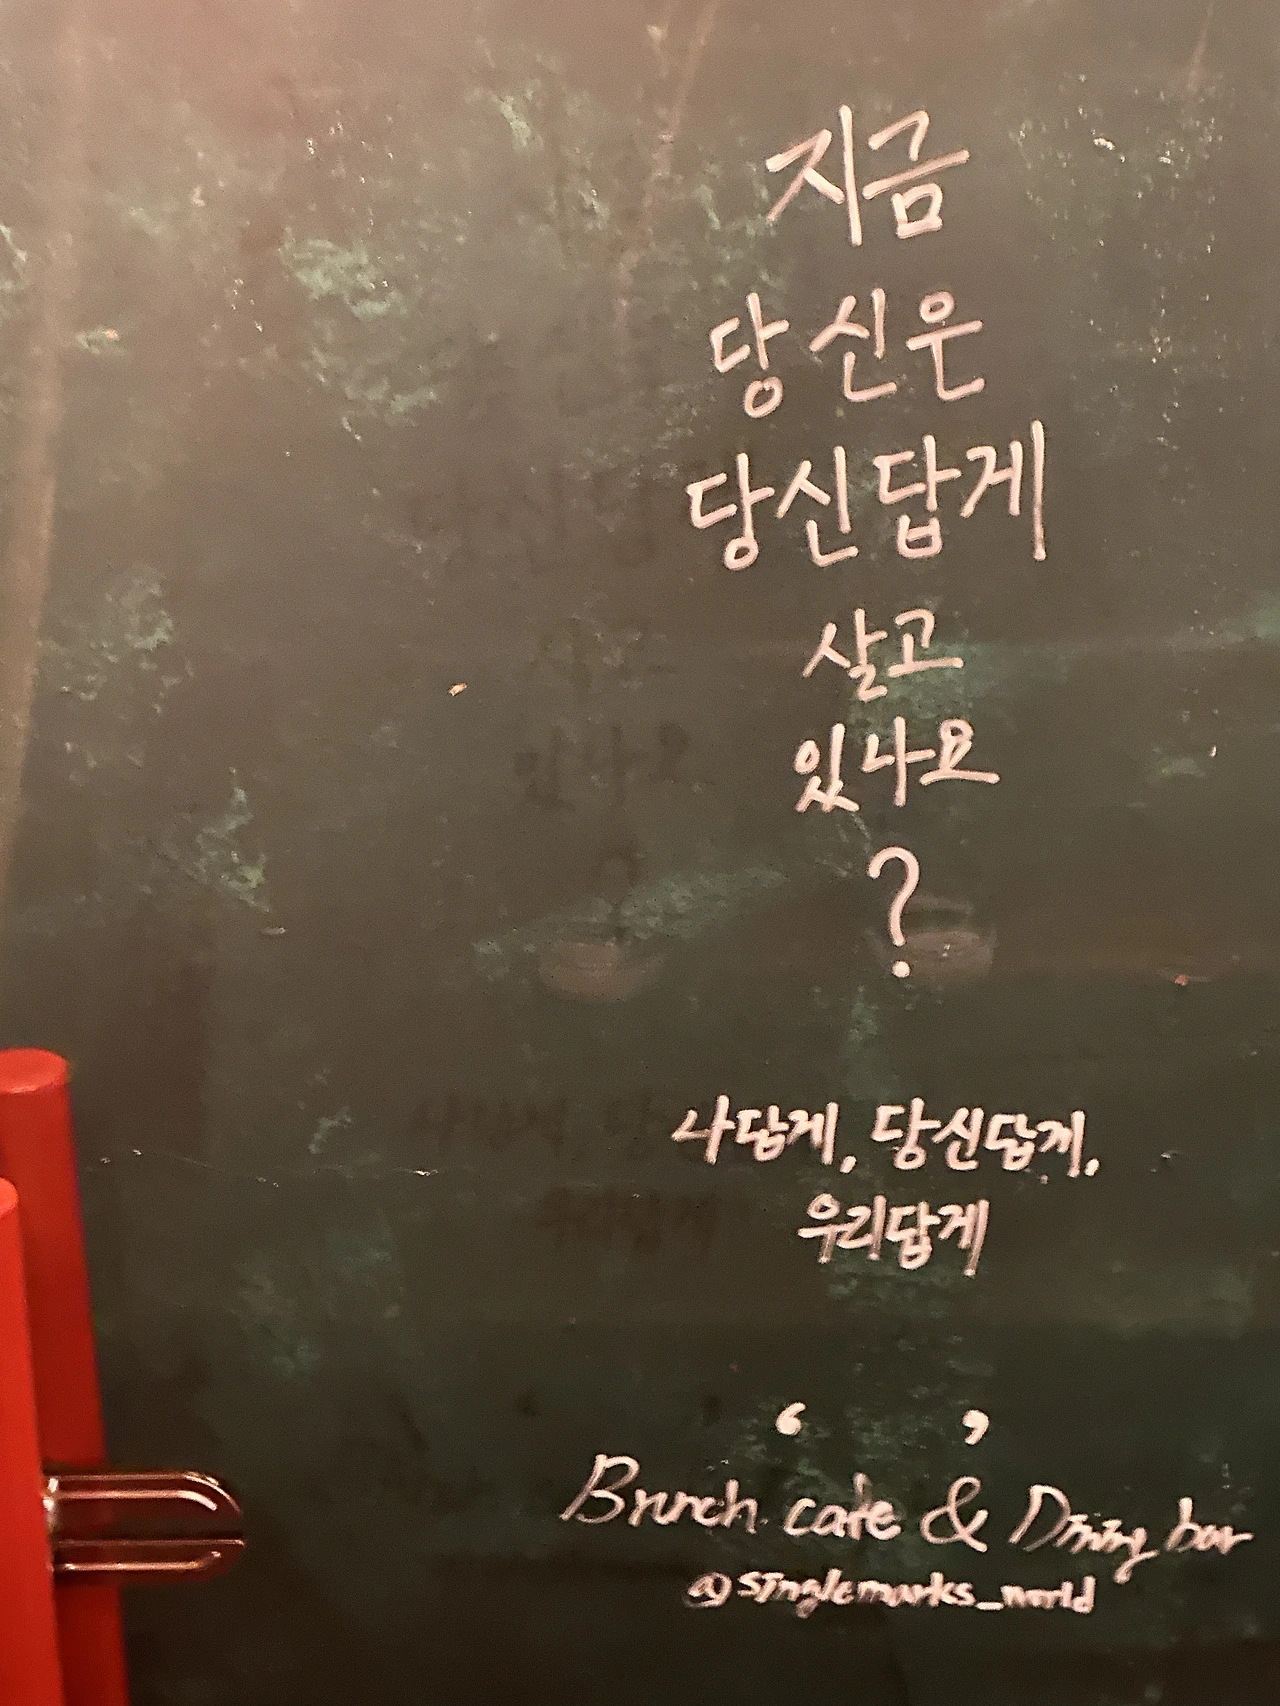 지금
당신은
당신답게
살고
있나요
?
나답게, 당신답게,
우리답게
‘ ’
Brunch cafe & Dining bar
@singlemarks_world